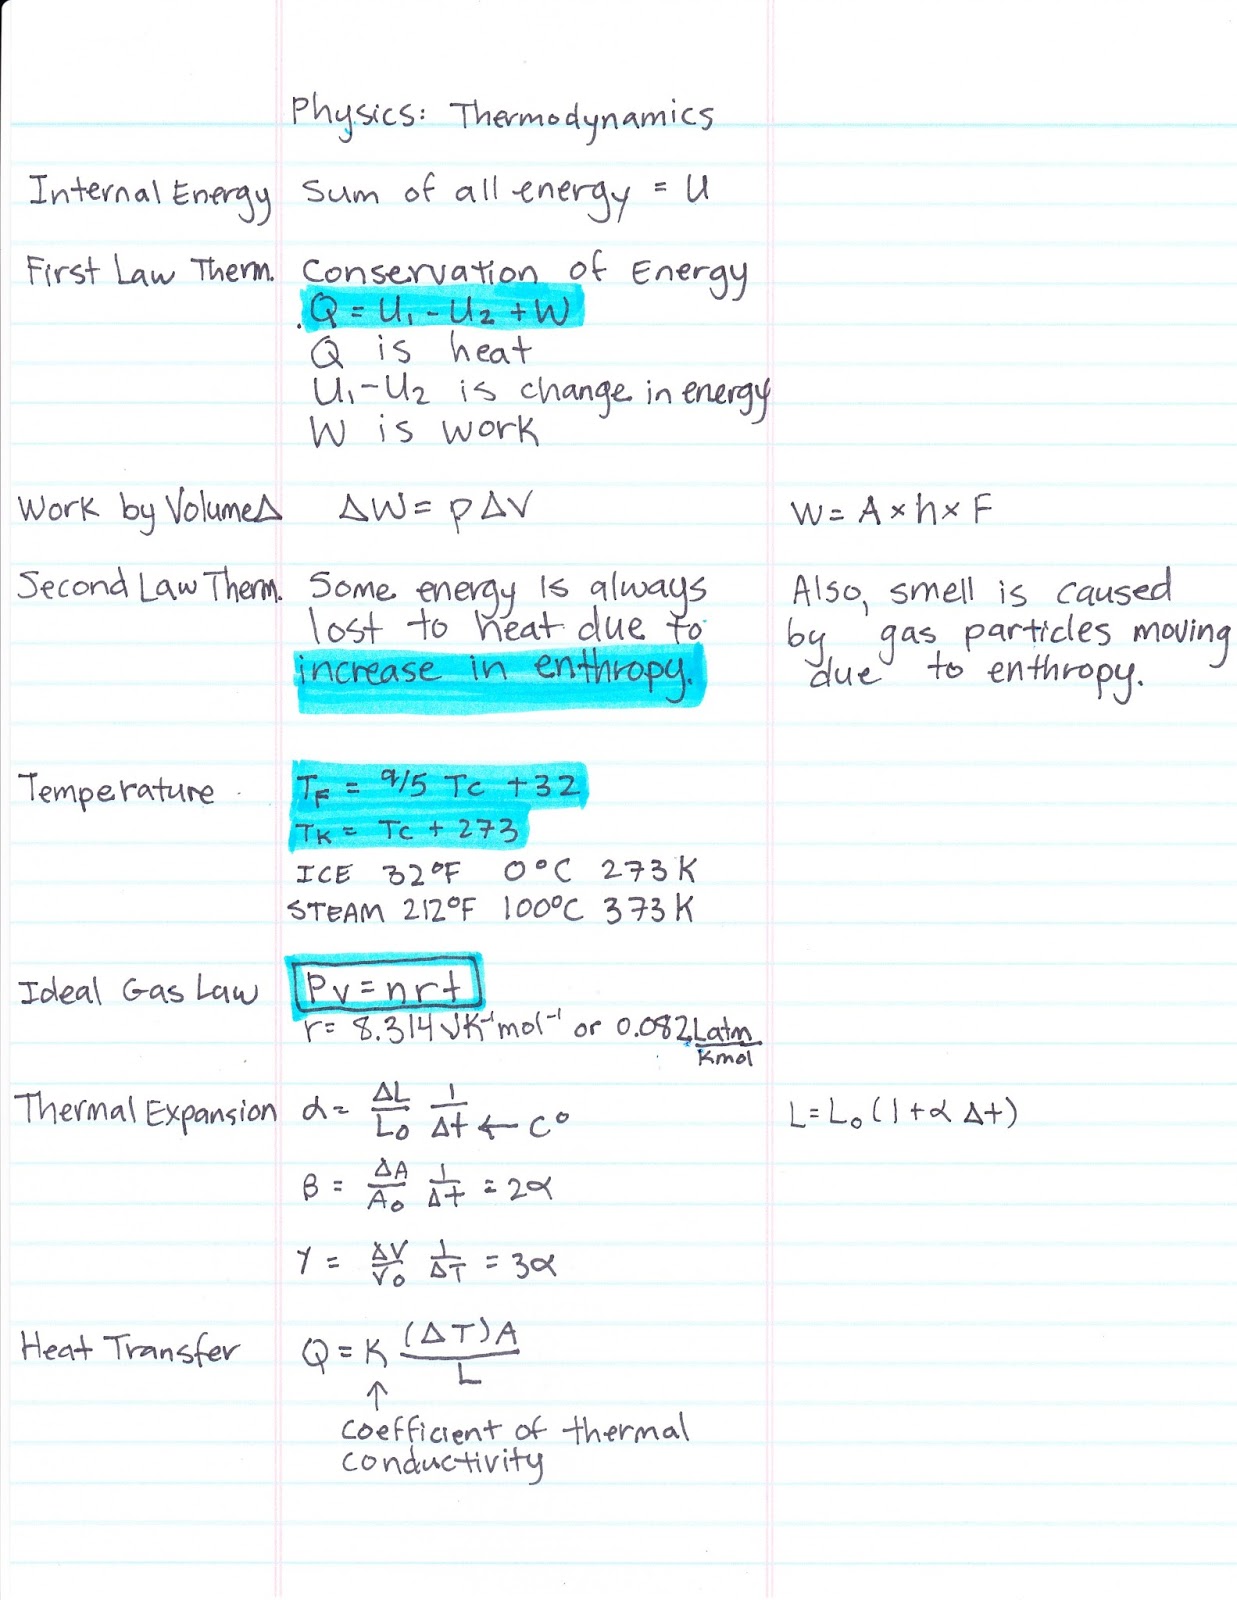 Physics: Thermodynamics
Internal Energy Sum of all energy = U
First Law Therm. Conservation of Energy
Q = U₁ - U₂ + W
Q is heat
U₁-U₂ is change in energy
W is work
Work by Volume Δ ΔW = pΔV W = A × h × F
Second Law Therm. Some energy is always Also, smell is caused
lost to heat due to by gas particles moving
increase in enthropy. due to enthropy.
Temperature T_F = 9/5 Tc + 32
T_K = Tc + 273
ICE 32°F 0°C 273K
STEAM 212°F 100°C 373K
Ideal Gas Law Pv = nrt
r = 8.314 JK⁻¹mol⁻¹ or 0.082 Latm/Kmol
Thermal Expansion α = ΔL/L₀ 1/Δt ← C° L = L₀ (1 + α Δt)
β = ΔA/A₀ 1/Δt = 2α
γ = ΔV/V₀ 1/ΔT = 3α
Heat Transfer Q = K (ΔT)A/L
↑
coefficient of thermal
conductivity